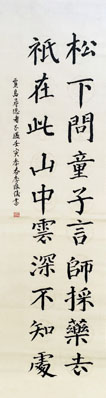 松下問童子言師採藥去
祇在此山中雲深不知處
賈島尋隱者不遇壬寅